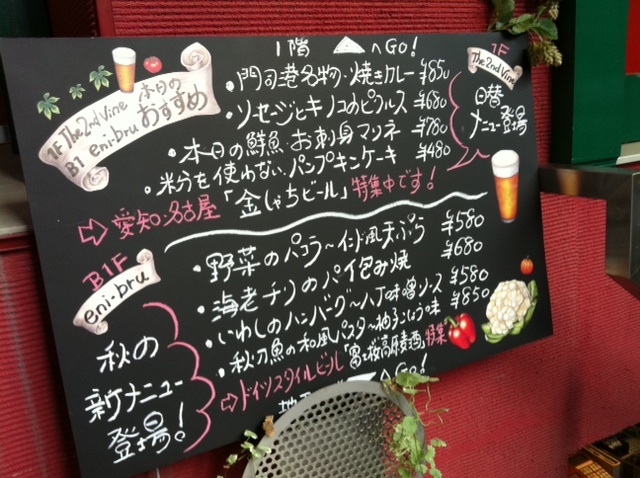 1階 へGO!
1F The 2nd Vine
B1 eni-bru
本日の
おすすめ
・門司港名物・焼きカレー ¥850
・ソセージとキノコのピラルス ¥680
・本日の鮮魚 お刺身マリネ ¥780
・米分を使わない パンプキンケーキ ¥480
⇨ 愛知・名古屋「金しゃちビール」特集中です!
1F
The 2nd Vine
日替
メニュー登場
B1F
eni-bru
秋の
新メニュー
登場!
・野菜のパコラ〜インド風天ぷら ¥580
・海老チリのパイ包み焼 ¥680
・いわしのハンバーグ〜八丁味噌ソース ¥580
・秋刀魚の和風パスタ〜柚子こしょう味 ¥850
⇨ ドイツスタイルビール「富士桜高原麦酒」特集
へGO!